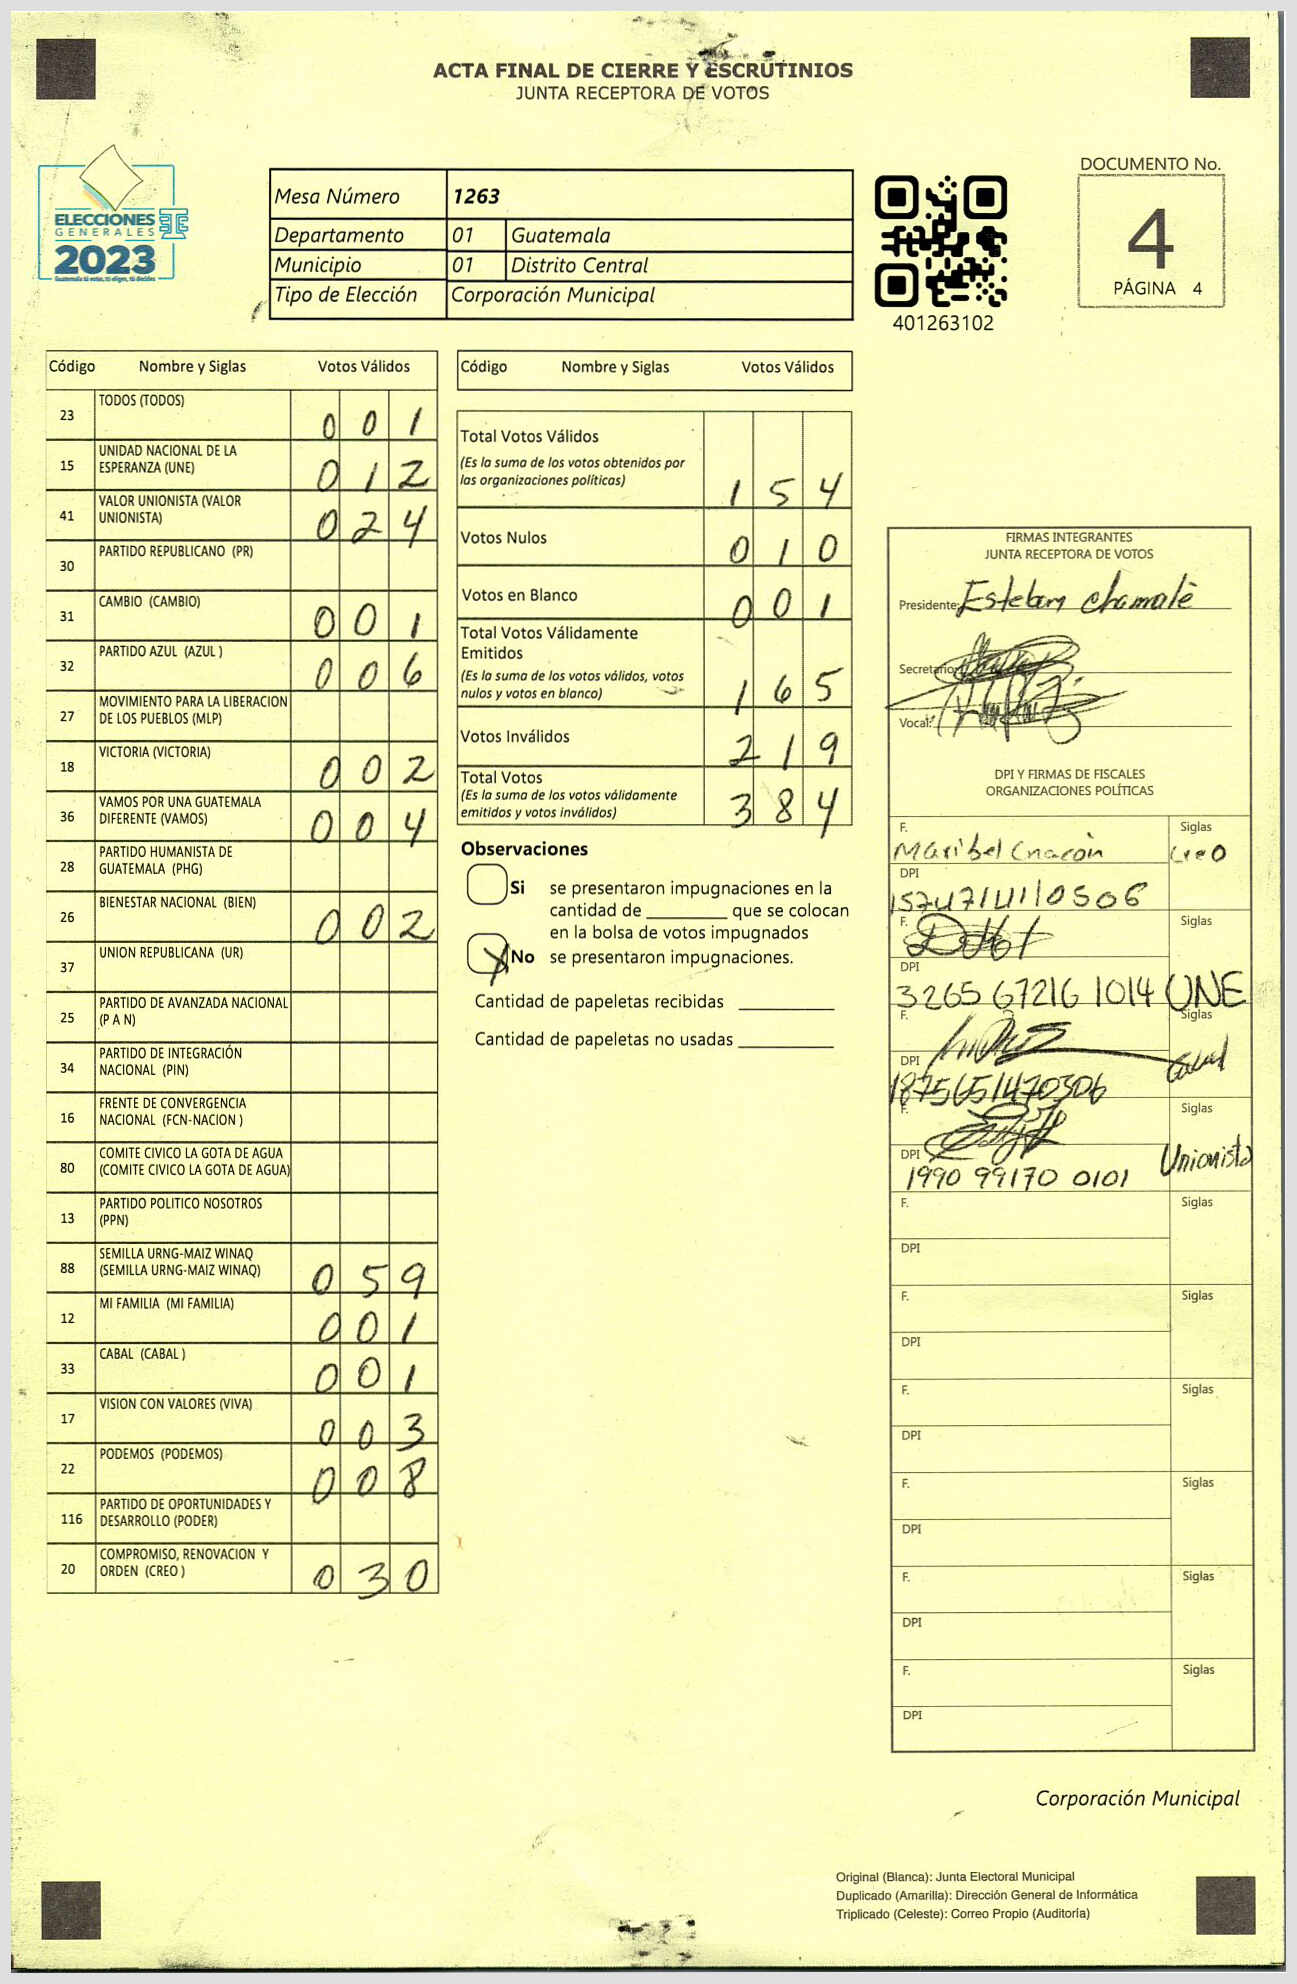 ACTA FINAL DE CIERRE Y ESCRUTINIOS
JUNTA RECEPTORA DE VOTOS
ELECCIONES
GENERALES
2023
Guatemala tú votas, tú eliges, tú decides
Mesa Número 1263
Departamento 01 Guatemala
Municipio 01 Distrito Central
Tipo de Elección Corporación Municipal
401263102
DOCUMENTO No.
4
PÁGINA 4
Código Nombre y Siglas Votos Válidos
23 TODOS (TODOS) 0 0 1
15 UNIDAD NACIONAL DE LA
ESPERANZA (UNE) 0 1 2
41 VALOR UNIONISTA (VALOR
UNIONISTA) 0 2 4
30 PARTIDO REPUBLICANO (PR)
31 CAMBIO (CAMBIO) 0 0 1
32 PARTIDO AZUL (AZUL ) 0 0 6
27 MOVIMIENTO PARA LA LIBERACION
DE LOS PUEBLOS (MLP)
18 VICTORIA (VICTORIA) 0 0 2
36 VAMOS POR UNA GUATEMALA
DIFERENTE (VAMOS) 0 0 4
28 PARTIDO HUMANISTA DE
GUATEMALA (PHG)
26 BIENESTAR NACIONAL (BIEN) 0 0 2
37 UNION REPUBLICANA (UR)
25 PARTIDO DE AVANZADA NACIONAL
(P A N)
34 PARTIDO DE INTEGRACIÓN
NACIONAL (PIN)
16 FRENTE DE CONVERGENCIA
NACIONAL (FCN-NACION )
80 COMITE CIVICO LA GOTA DE AGUA
(COMITE CIVICO LA GOTA DE AGUA)
13 PARTIDO POLITICO NOSOTROS
(PPN)
88 SEMILLA URNG-MAIZ WINAQ
(SEMILLA URNG-MAIZ WINAQ) 0 5 9
12 MI FAMILIA (MI FAMILIA) 0 0 1
33 CABAL (CABAL ) 0 0 1
17 VISION CON VALORES (VIVA) 0 0 3
22 PODEMOS (PODEMOS) 0 0 8
116 PARTIDO DE OPORTUNIDADES Y
DESARROLLO (PODER)
20 COMPROMISO, RENOVACION Y
ORDEN (CREO ) 0 3 0
Código Nombre y Siglas Votos Válidos
Total Votos Válidos
(Es la suma de los votos obtenidos por
las organizaciones políticas) 1 5 4
Votos Nulos 0 1 0
Votos en Blanco 0 0 1
Total Votos Válidamente
Emitidos
(Es la suma de los votos válidos, votos
nulos y votos en blanco) 1 6 5
Votos Inválidos 2 1 9
Total Votos
(Es la suma de los votos válidamente
emitidos y votos inválidos) 3 8 4
Observaciones
Si se presentaron impugnaciones en la
cantidad de ________ que se colocan
en la bolsa de votos impugnados
X No se presentaron impugnaciones.
Cantidad de papeletas recibidas ________
Cantidad de papeletas no usadas ________
FIRMAS INTEGRANTES
JUNTA RECEPTORA DE VOTOS
Presidente: Esteban Chamalé
Secretario:
Vocal:
DPI Y FIRMAS DE FISCALES
ORGANIZACIONES POLÍTICAS
F. Siglas
Maribel Creo
DPI
F. Siglas
DPI
3265 67216 1014 UNE
F. Siglas
DPI Cabal
1875651470306
F. Siglas
DPI Unionista
1990 99170 0101
F. Siglas
DPI
F. Siglas
DPI
F. Siglas
DPI
F. Siglas
DPI
F. Siglas
DPI
F. Siglas
DPI
Corporación Municipal
Original (Blanca): Junta Electoral Municipal
Duplicado (Amarilla): Dirección General de Informática
Triplicado (Celeste): Correo Propio (Auditoría)